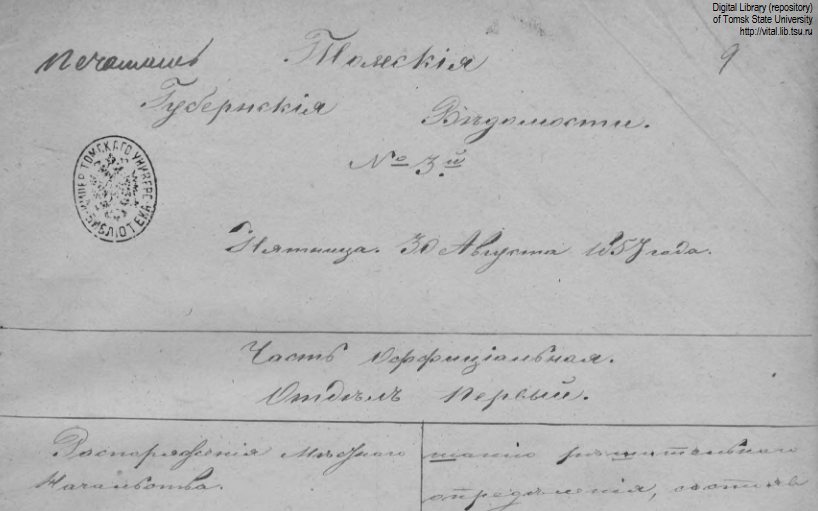 Digital Library (repository)
of Tomsk State University
http://vital.lib.tsu.ru
Печатать
Томскія
9
Губернскія Вѣдомости.
№ 3й
ИМПЕР. ТОМСКАГО УНИВЕРС. БИБЛІОТЕКА
Пятница. 30 Августа 1857 года.
Часть Оффиціальная.
Отдѣлъ Первый.
Распоряженія Мѣстнаго
Начальства.
шанію рѣшительнаго
опредѣленія,